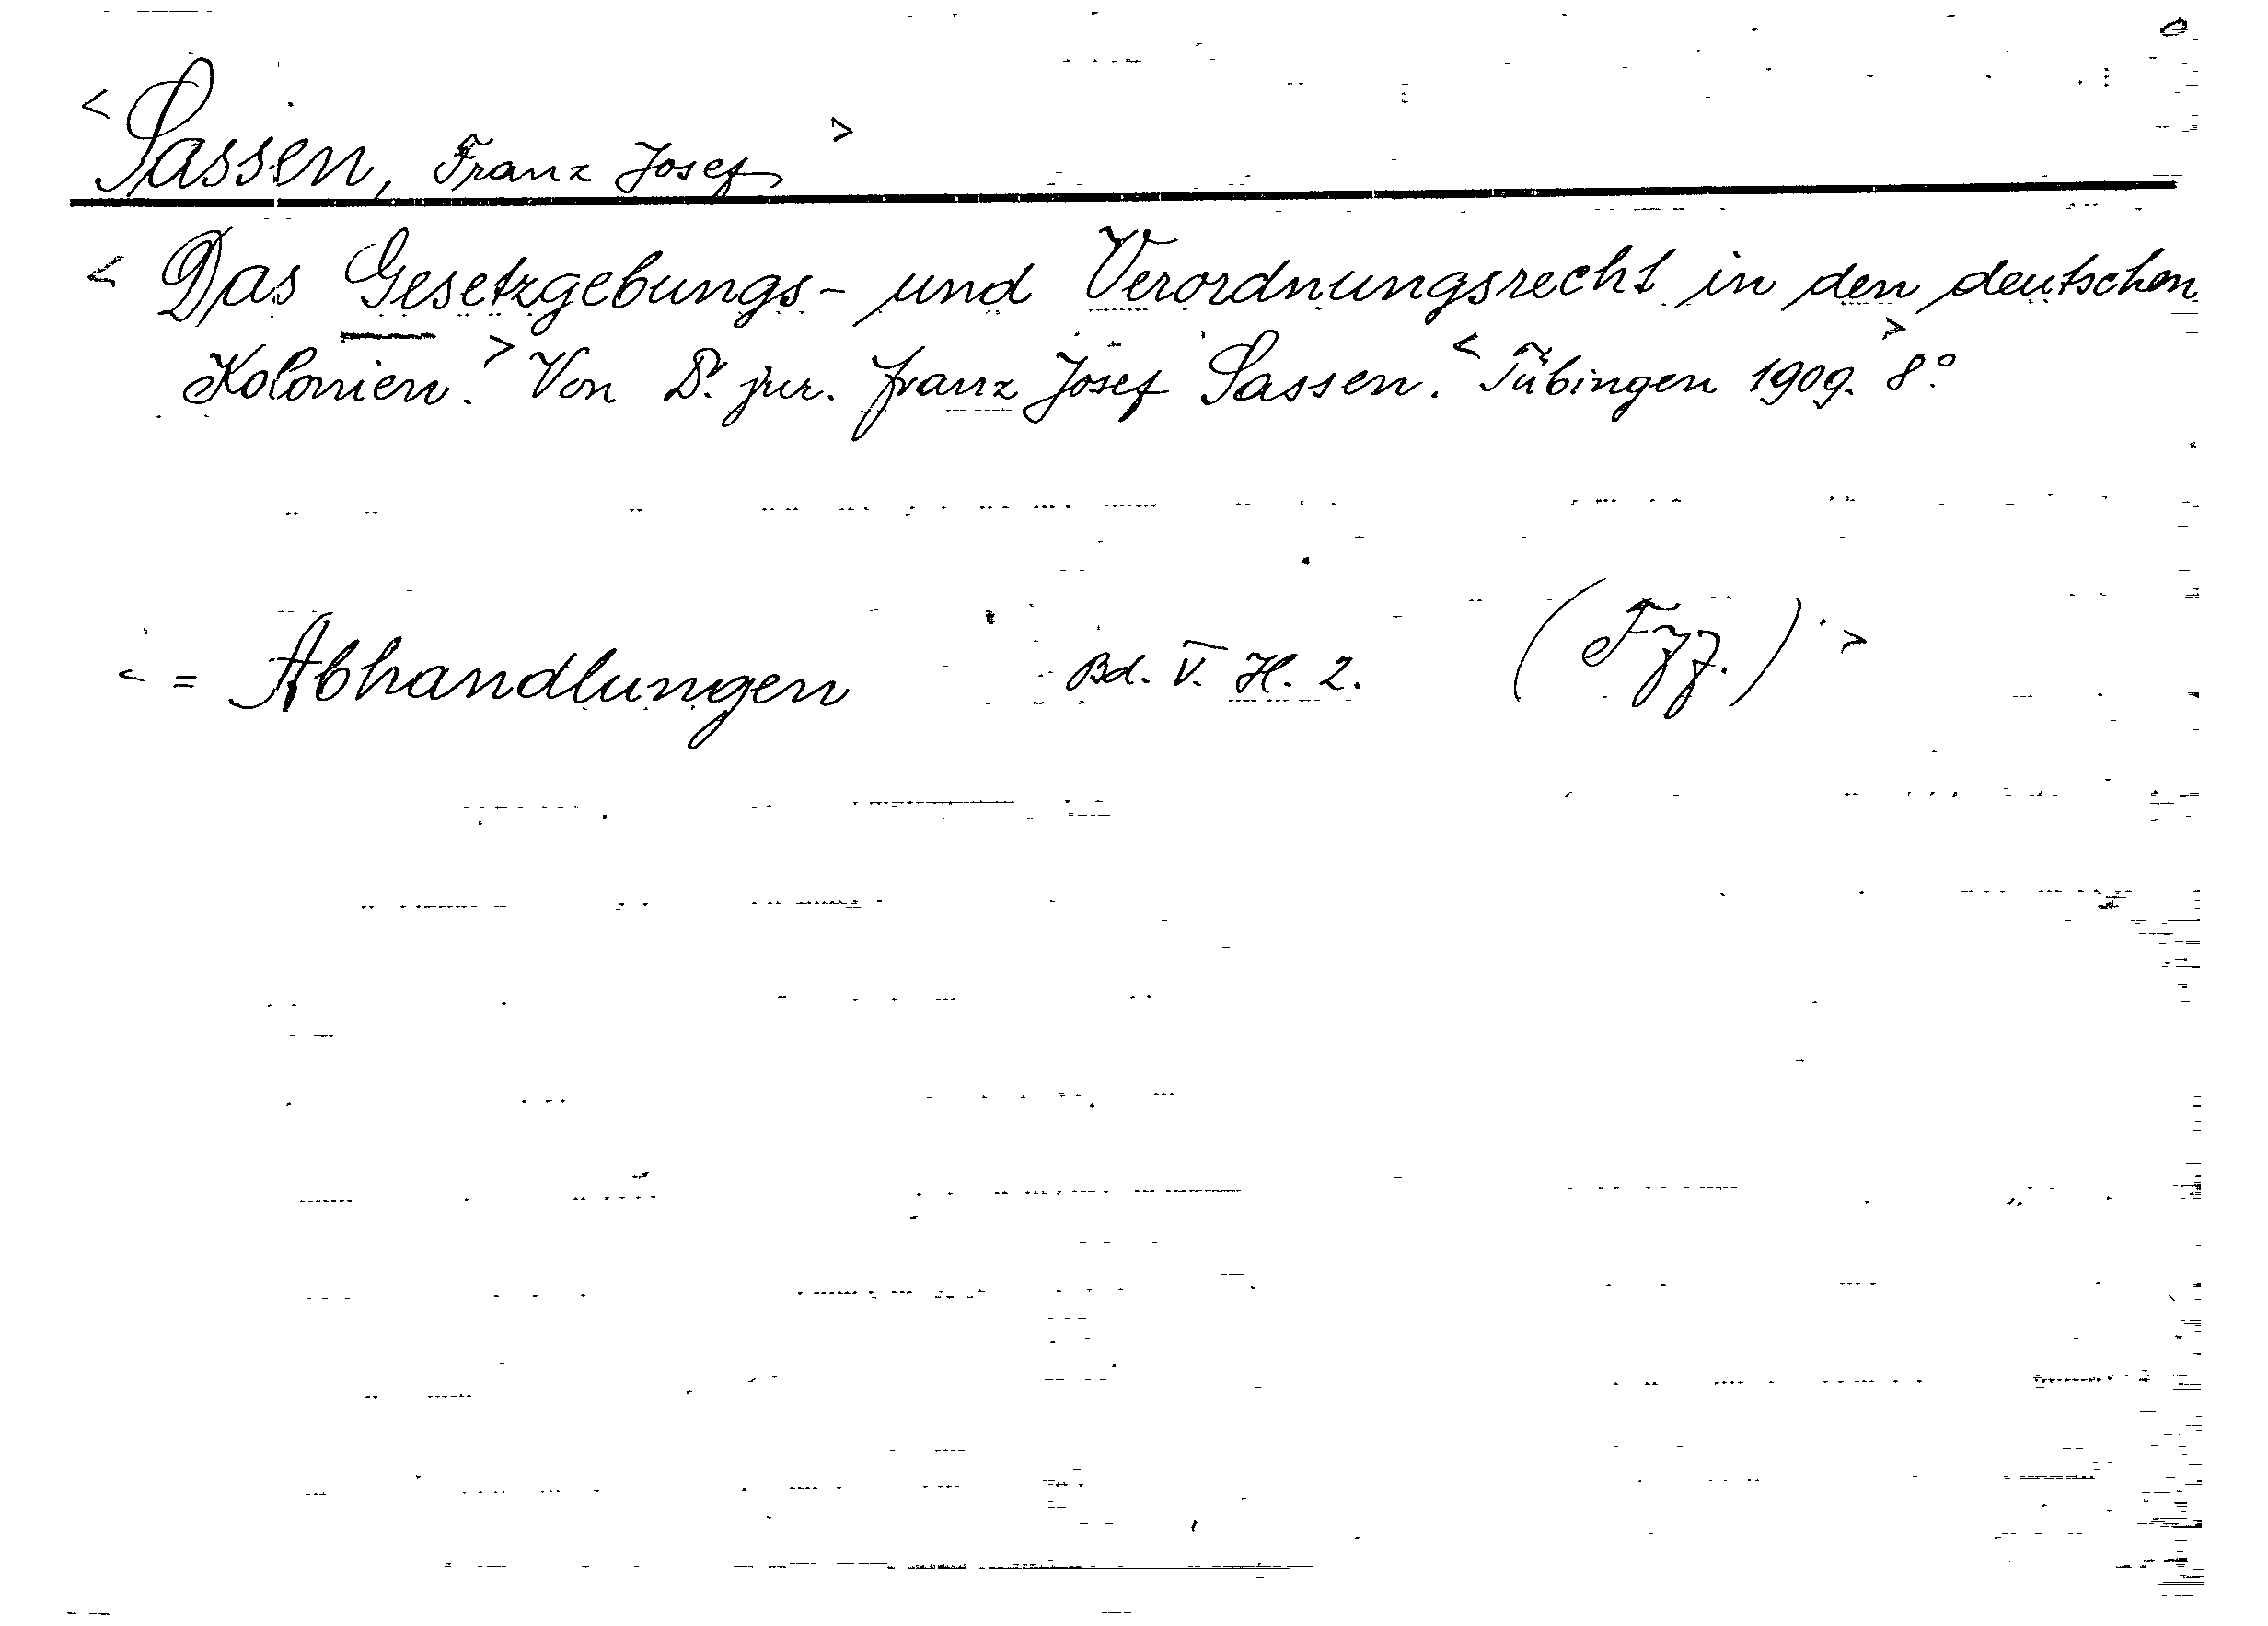 < Sassen, Franz Josef >
< Das Gesetzgebungs- und Verordnungsrecht in den deutschen
Kolonien. > Von Dr. jur. Franz Josef Sassen. < Tübingen 1909. 8.° >
< = Abhandlungen Bd. V. H. 2. (Fzz.) >